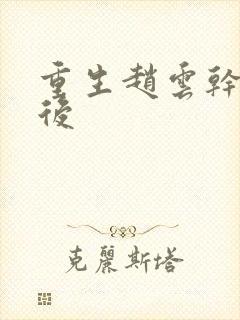 重生趙雲幹
後
克麗斯塔